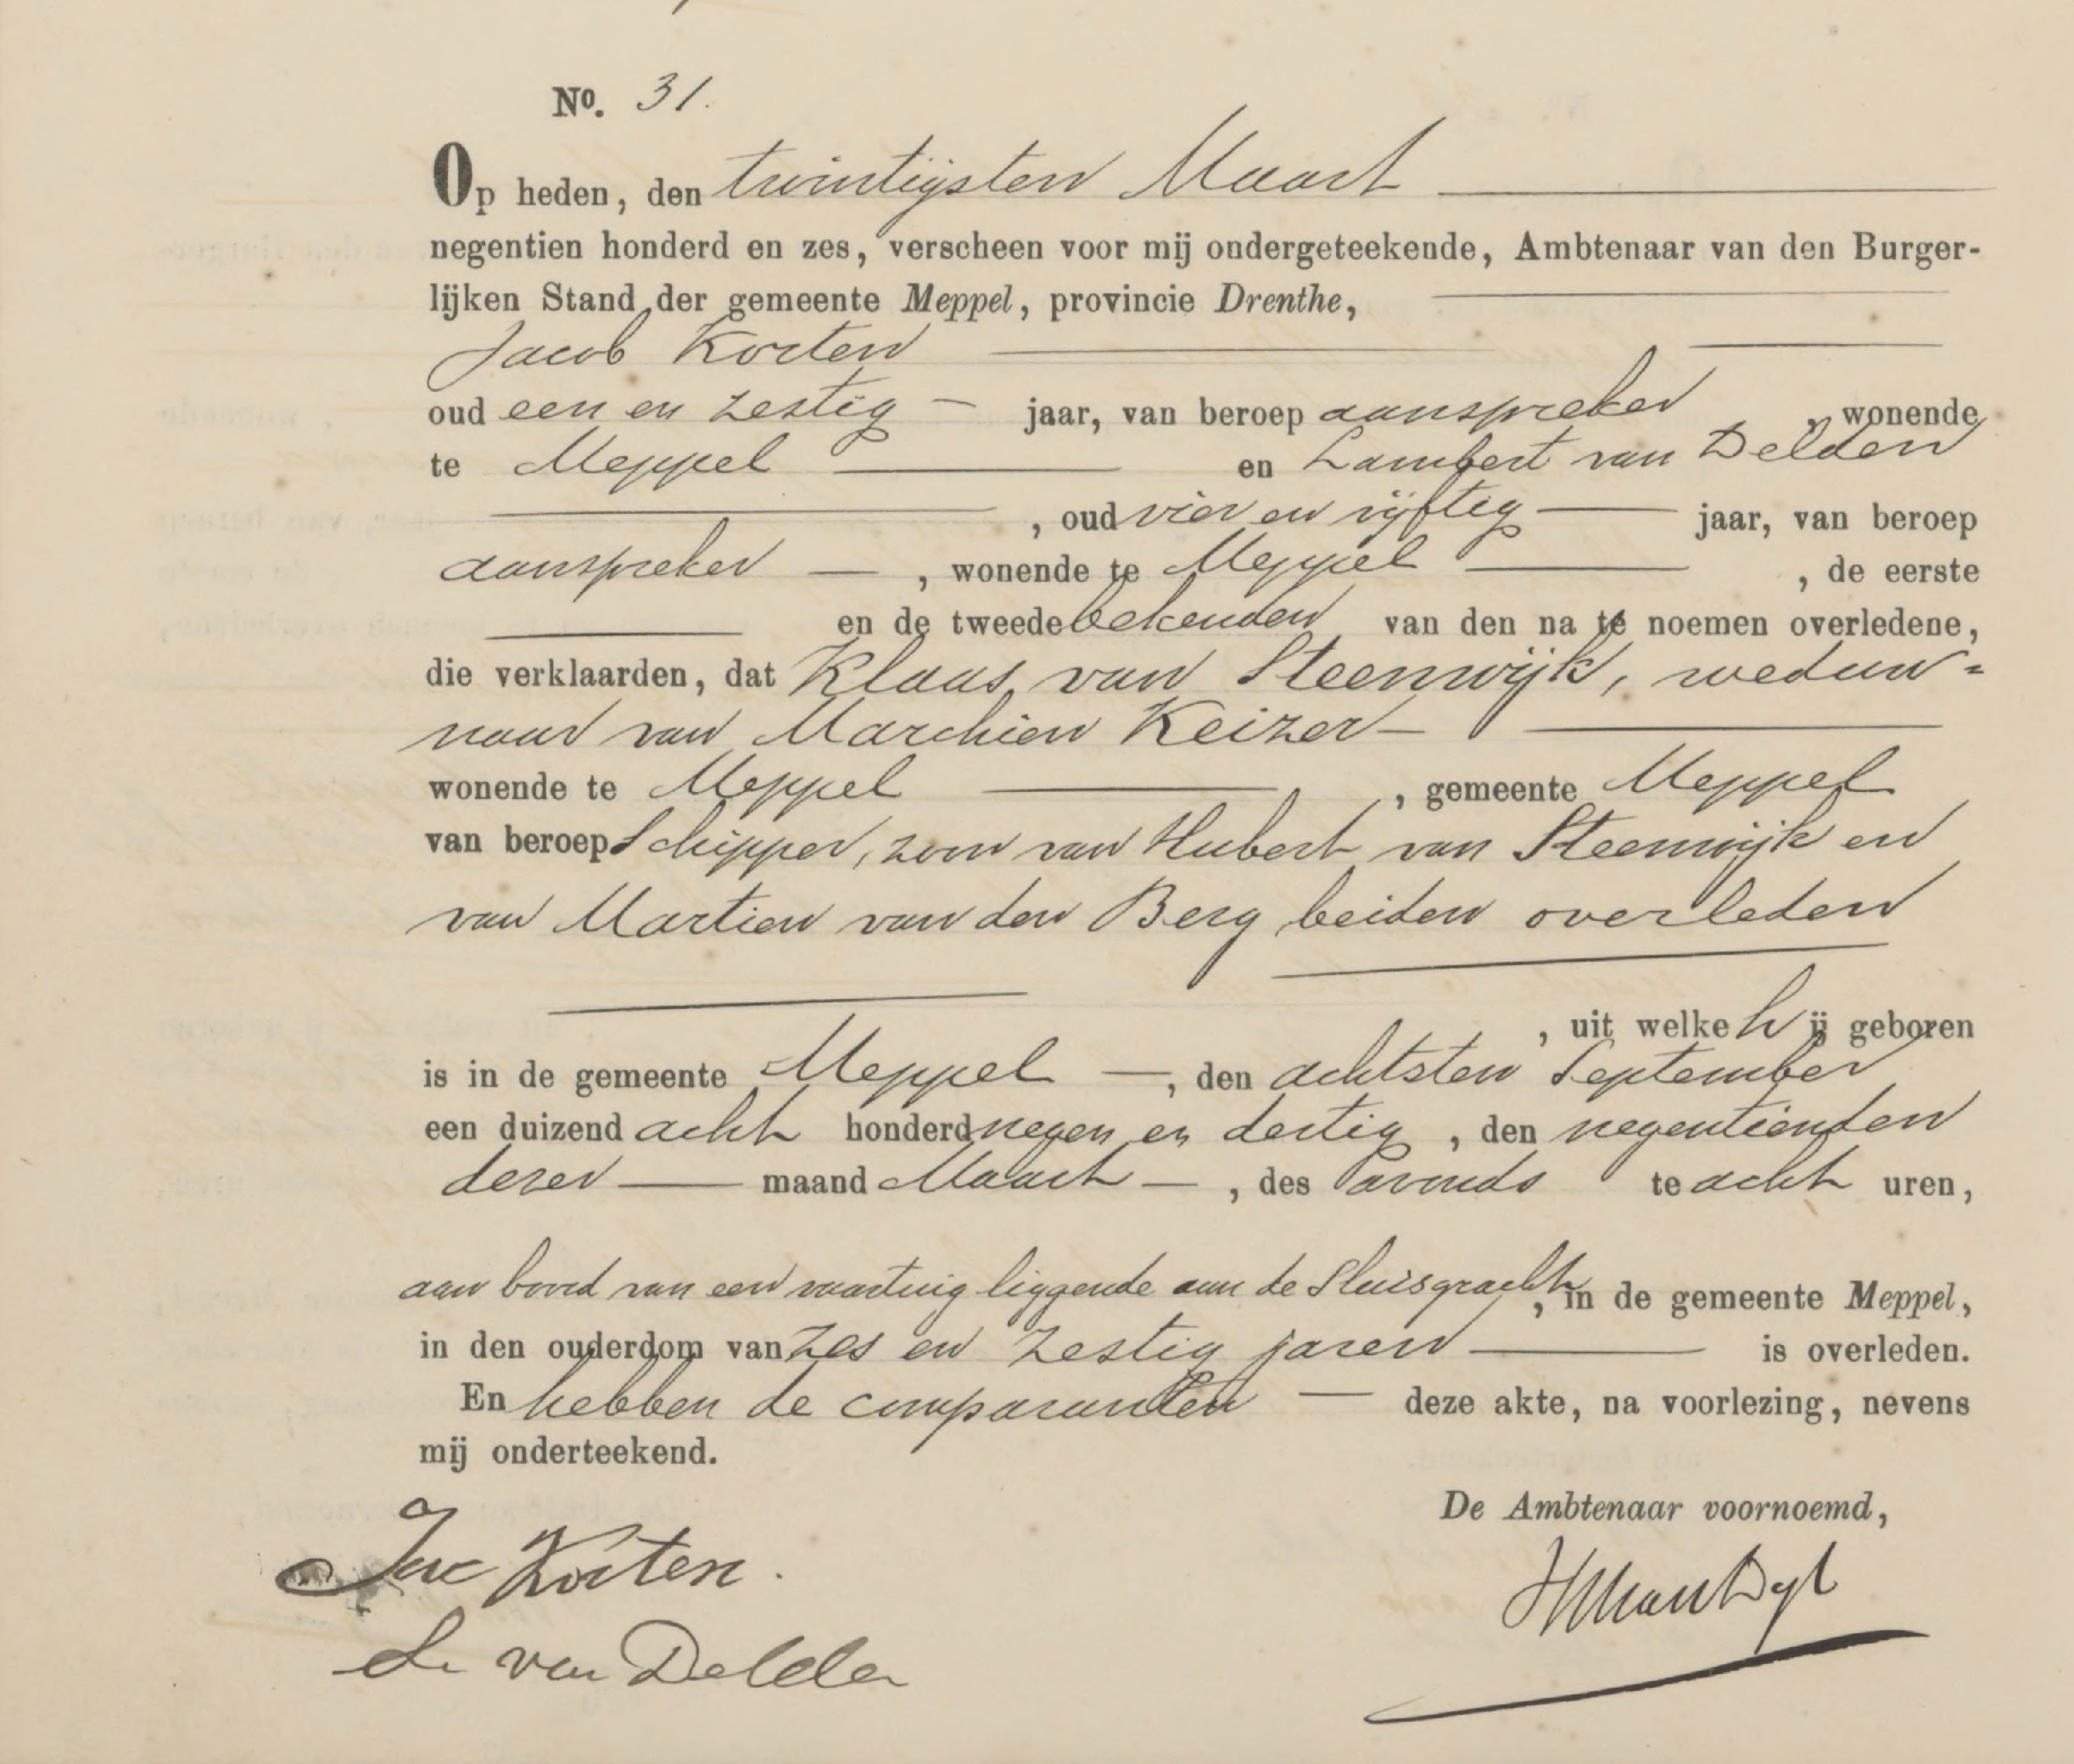 No. 31.
Op heden, den twintigsten Maart
negentien honderd en zes, verscheen voor mij ondergeteekende, Ambtenaar van den Burger-
lijken Stand der gemeente Meppel, provincie Drenthe,
Jacob Korten
oud een en zestig jaar, van beroep aanspreker, wonende
te Meppel en Lambert van Delden
, oud vier en vijftig jaar, van beroep
aanspreker, wonende te Meppel, de eerste
en de tweede bekenden van den na te noemen overledene,
die verklaarden, dat Klaas van Steenwijk, weduw=
naar van Marchien Keizer
wonende te Meppel, gemeente Meppel
van beroep Schipper, zoon van Hubert van Steenwijk en
van Martien van den Berg beiden overleden
, uit welke hij geboren
is in de gemeente Meppel, den achtsten September
een duizend acht honderd negen en dertig, den negentienden
dezer maand Maart, des avonds te acht uren,
aan boord van een vaartuig liggende aan de Sluisgracht, in de gemeente Meppel,
in den ouderdom van zes en zestig jaren is overleden.
En hebben de comparanten deze akte, na voorlezing, nevens
mij onderteekend.
De Ambtenaar voornoemd,
Jac Korten.
L. van Delden